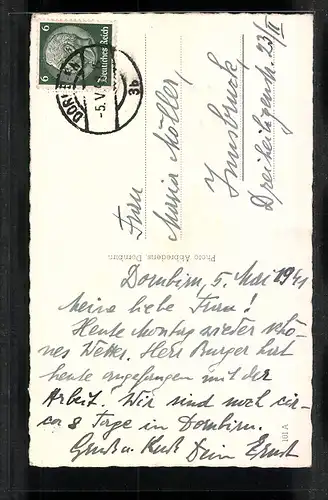 6 Deutsches Reich 6
DORNBIRN
-5.V.
3b
Frau
Maria Möller,
Innsbruck,
Dreiheiligenstr. 23/II
Photo Abbrederis, Dornbirn.
Dornbirn, 5. Mai 1941
Meine liebe Frau!
Heute Montag wieder schö-
nes Wetter. Herr Burger hat
heute angefangen mit der
Arbeit. Wir sind noch cir-
ca 8 Tage in Dornbirn.
Gruß u. Kuß Dein Ernst
181 A